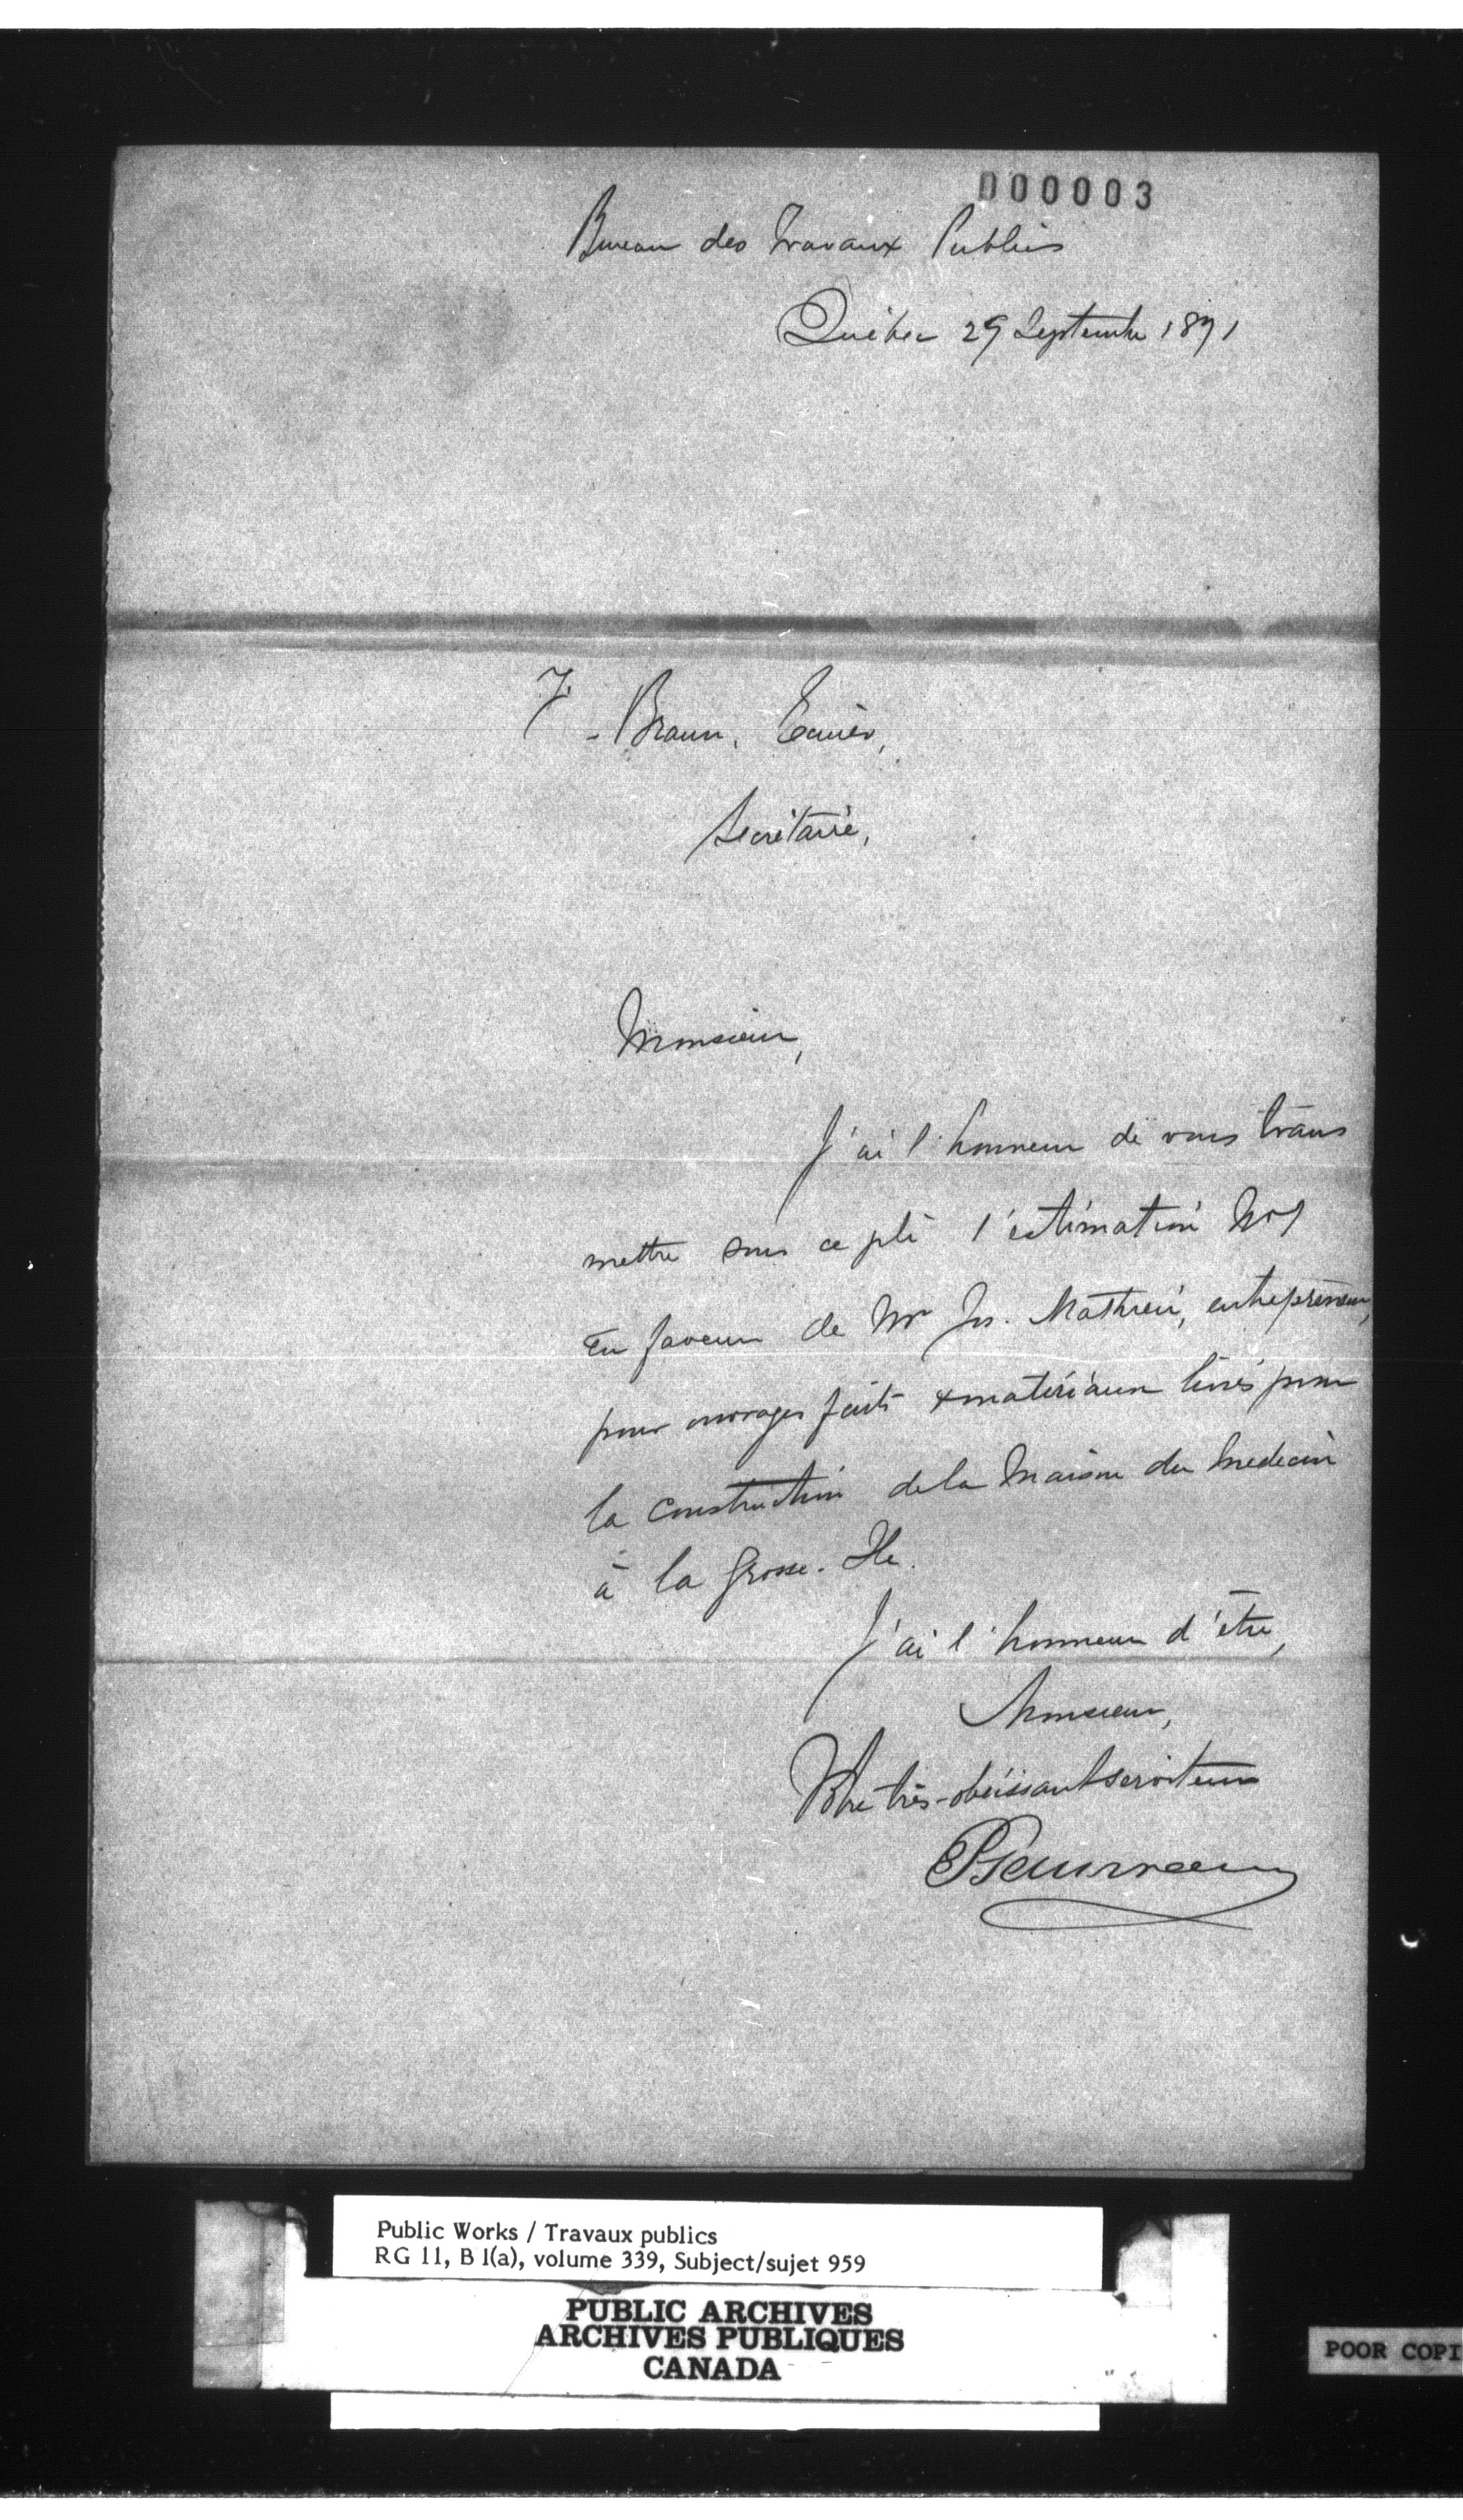 000003
Bureau des Travaux Publics
Québec 29 Septembre 1871
F. Braun, Ecuier,
Secrétaire,
Monsieur,
J'ai l'honneur de vous trans
mettre sous ce pli l'estimation No 1
en faveur de Mr Jos. Mathieu, entrepreneur,
pour ouvrages faits & matériaux livrés pour
la construction de la Maison du Medecin
à la Grosse-Ile.
J'ai l'honneur d'être,
Monsieur,
Votre très-obéissant serviteur
Public Works / Travaux publics
RG 11, B 1(a), volume 339, Subject/sujet 959
PUBLIC ARCHIVES
ARCHIVES PUBLIQUES
CANADA
POOR COPI